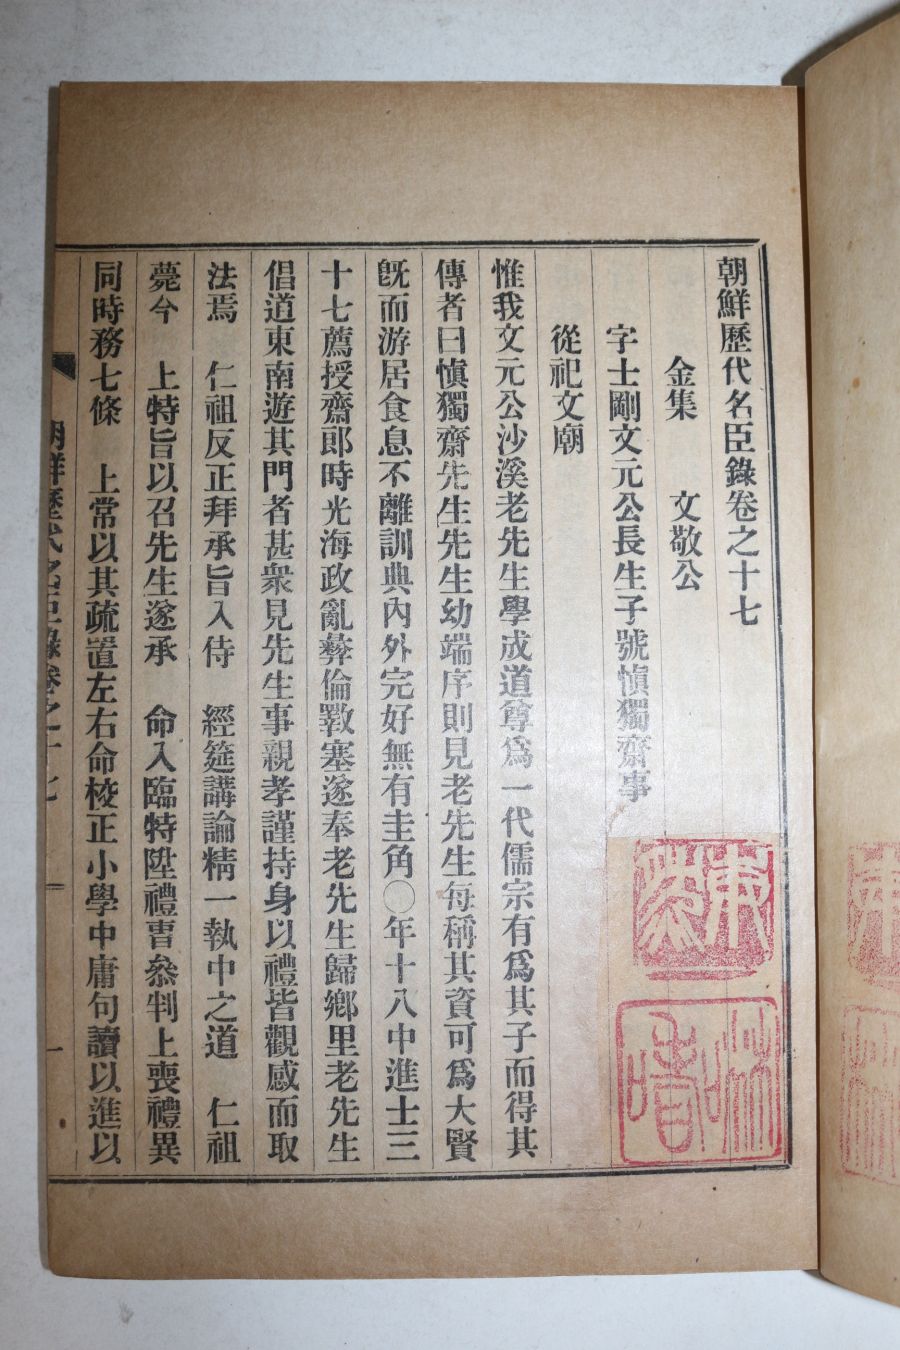 朝鮮歷代名臣錄卷之十七
金集　文敬公
字士剛文元公長生子號愼獨齋事
從祀文廟
惟我文元公沙溪老先生學成道尊爲一代儒宗有爲其子而得其
傳者曰愼獨齋先生先生幼端序則見老先生每稱其資可爲大賢
旣而游居食息不離訓典內外完好無有圭角〇年十八中進士三
十七薦授齋郎時光海政亂彝倫斁塞遂奉老先生歸鄉里老先生
倡道東南遊其門者甚衆見先生事親孝謹持身以禮皆觀感而取
法焉　仁祖反正拜承旨入侍　經筵講論精一執中之道　仁祖
薨今　上特旨以召先生遂承　命入臨特陞禮曹叅判上喪禮異
同時務七條　上常以其疏置左右命校正小學中庸句讀以進以
朝鮮歷代名臣錄卷之十七　一